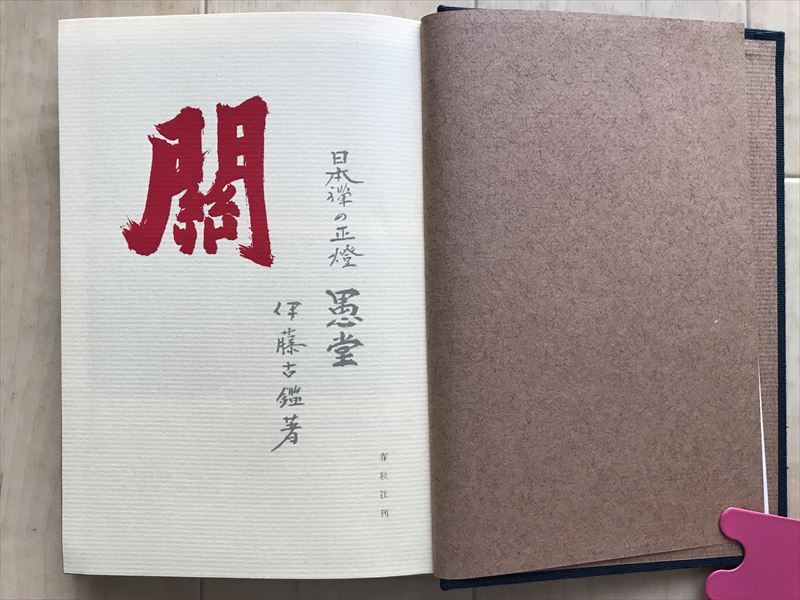 日本禅の正燈 愚堂
伊藤古鑑著
春秋社刊
關